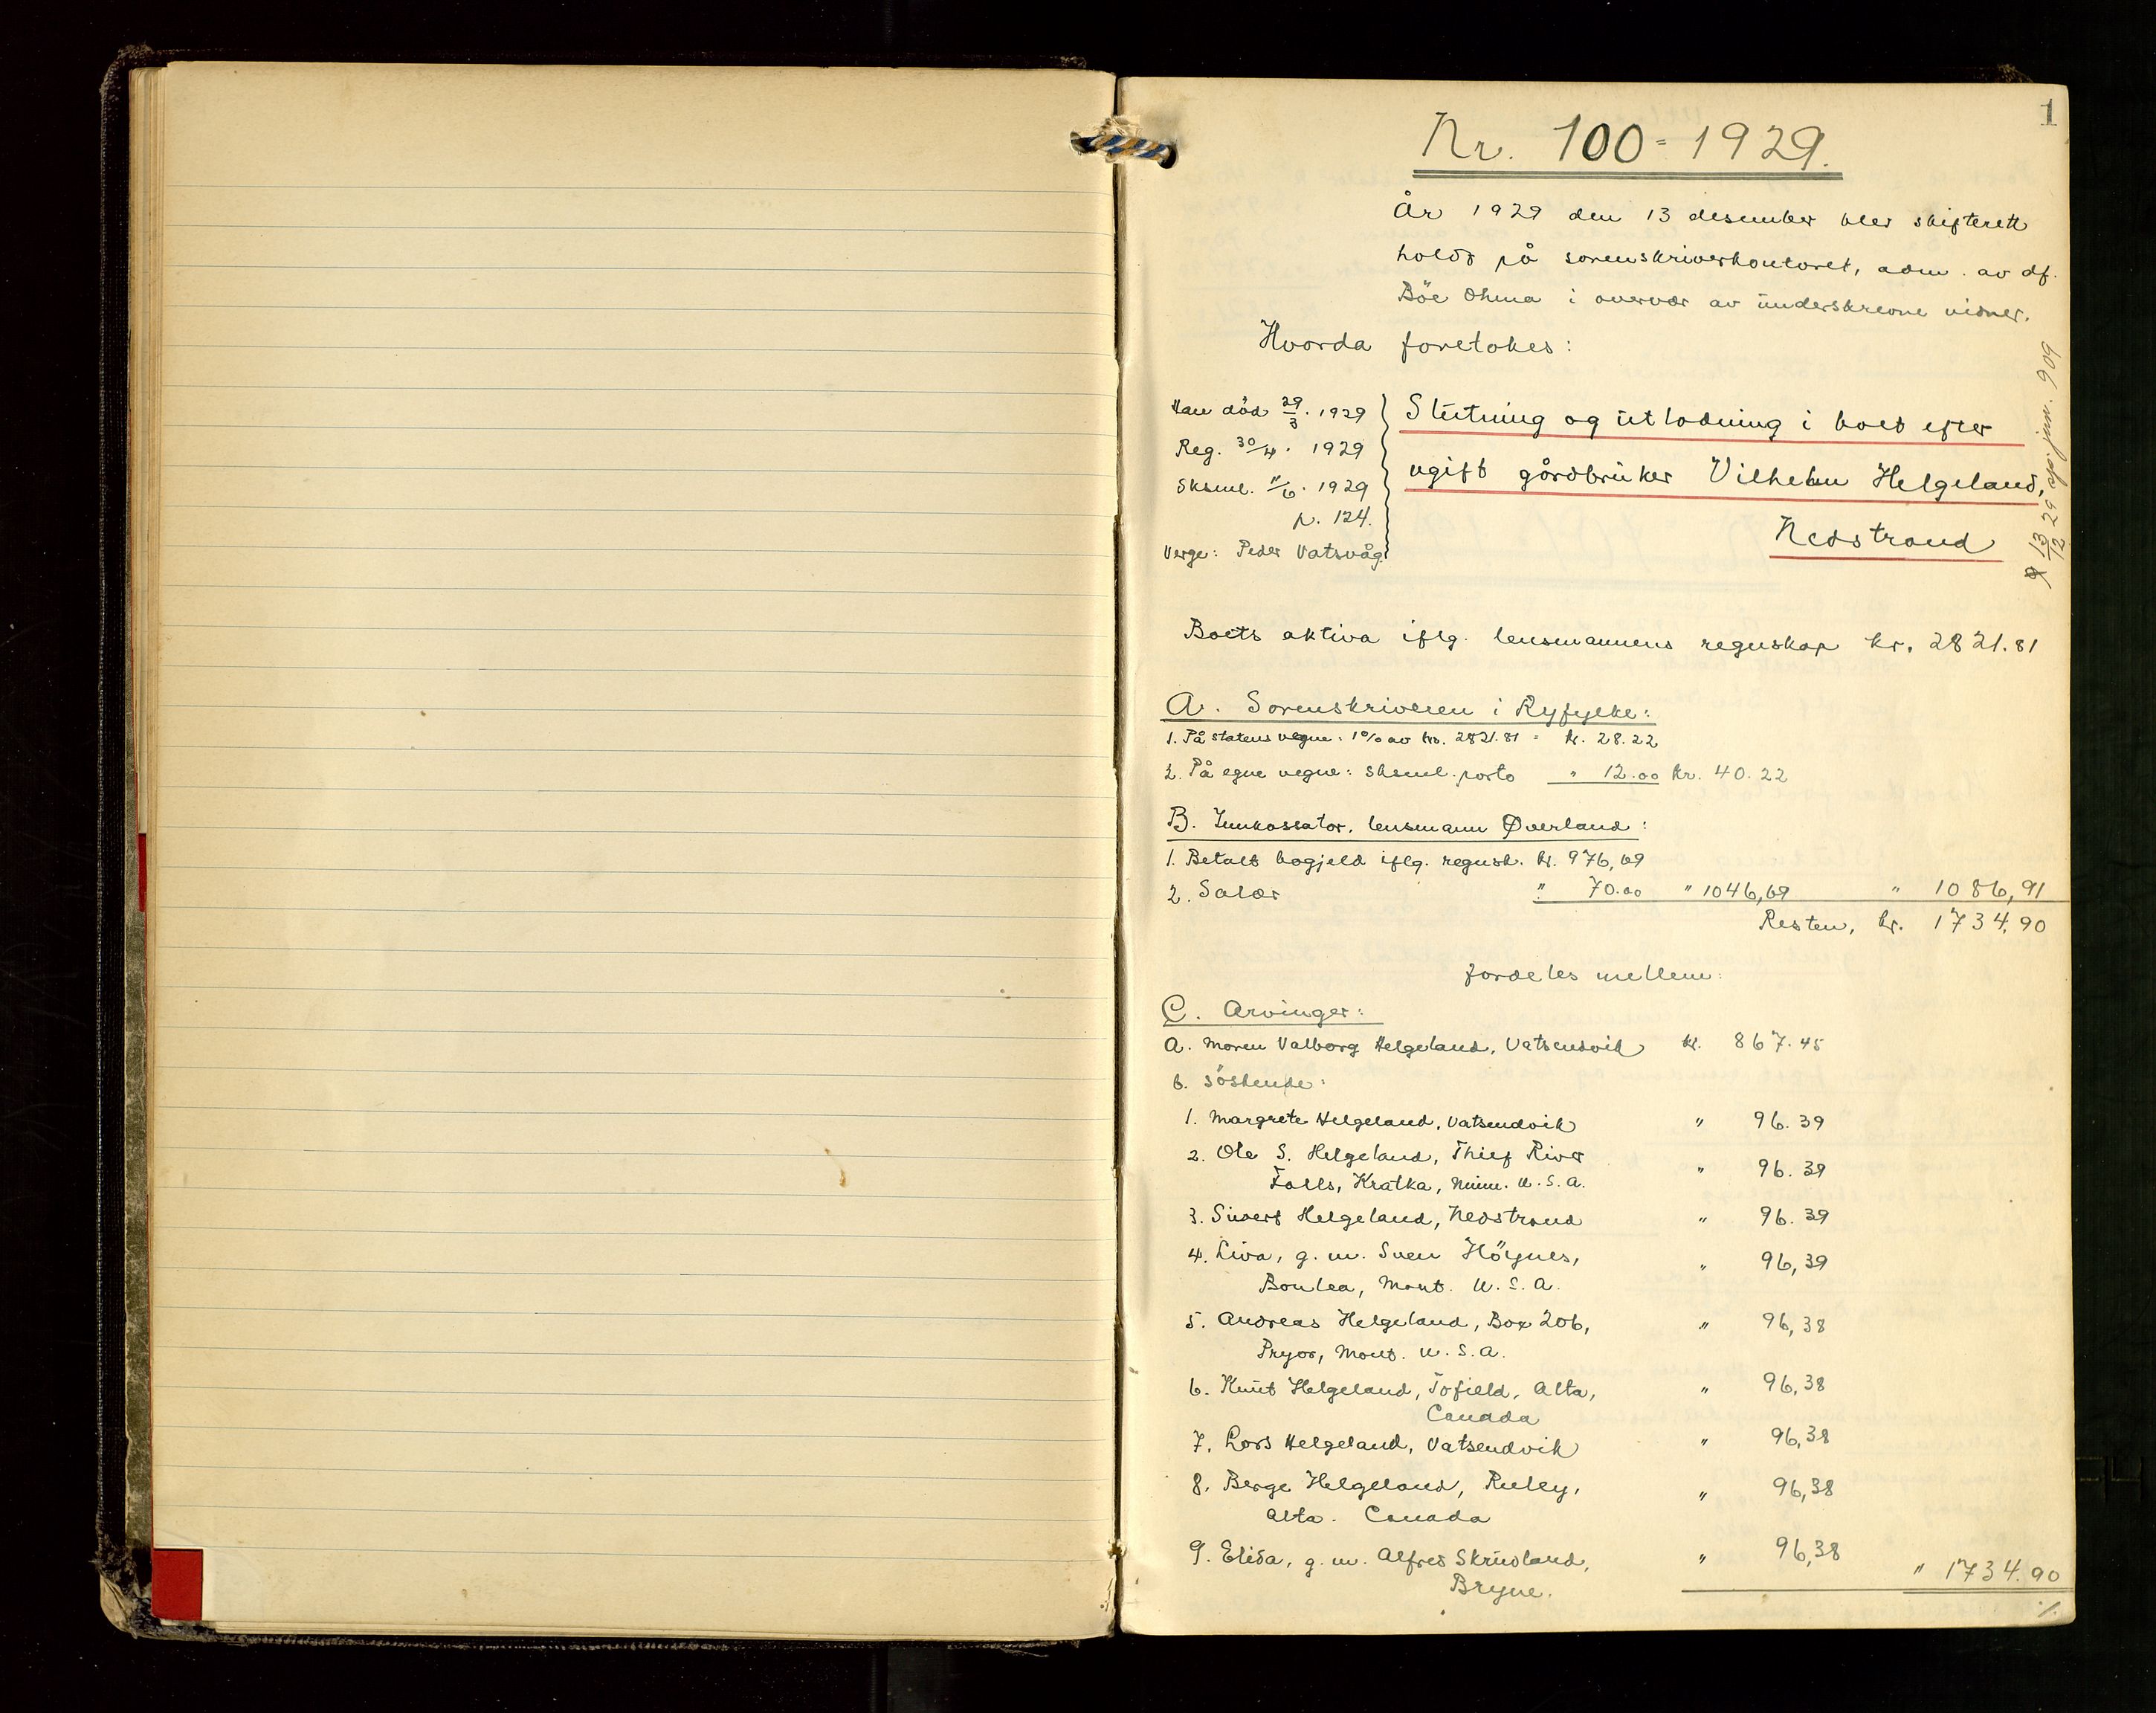 1
Nr. 100 = 1929.
År 1929 den 13 desember blev skifterett
holdt på sorenskriverkontoret, adm. av df.
Böe Ohma i overvær av underskrevne vidner.
Hvorda foretokes:
Han död 29/3. 1929
Reg. 30/4. 1929
Sksml. 11/6. 1929
p. 124.
Verge: Peder Vatsvåg.
Slutning og utlodning i boet efter
ugift gårdbruker Vilhelm Helgeland,
Nedstrand
13/12 29 jnr. 909
Boets aktiva iflg. lensmannens regnskap kr. 2821.81
A. Sorenskriveren i Ryfylke:
1. På statens vegne: 1% av kr. 2821.81 = kr. 28.22
2. På egne vegne: sksml. porto " 12.00 kr. 40.22
B. Innkassator, lensmann Överland:
1. Betalt bogjeld iflg. regnsk. kr. 976,69
2. Salær " 70.00 " 1046,69 " 1086,91
Resten, kr. 1734.90
fordeles mellem:
C. Arvinger:
a. moren Valborg Helgeland, Vatsendvik kr. 867.45
b. söskende:
1. Margrete Helgeland, Vatsendvik " 96.39
2. Ole S. Helgeland, Thief River
Falls, Kratka, Minn. U.S.A. " 96.39
3. Sivert Helgeland, Nedstrand " 96.39
4. Liva, g. m. Sven Höynes,
Bonlea, Mont. U.S.A. " 96,39
5. Andreas Helgeland, Box 206,
Pryor, Mont. U.S.A. " 96,38
6. Knut Helgeland, Tofield, Alta,
Canada " 96,38
7. Lars Helgeland, Vatsendvik " 96,38
8. Berge Helgeland, Ruley,
Alta. Canada " 96,38
9. Elida, g. m. Alfred Skrudland,
Bryne. " 96,38 " 1734.90
./.